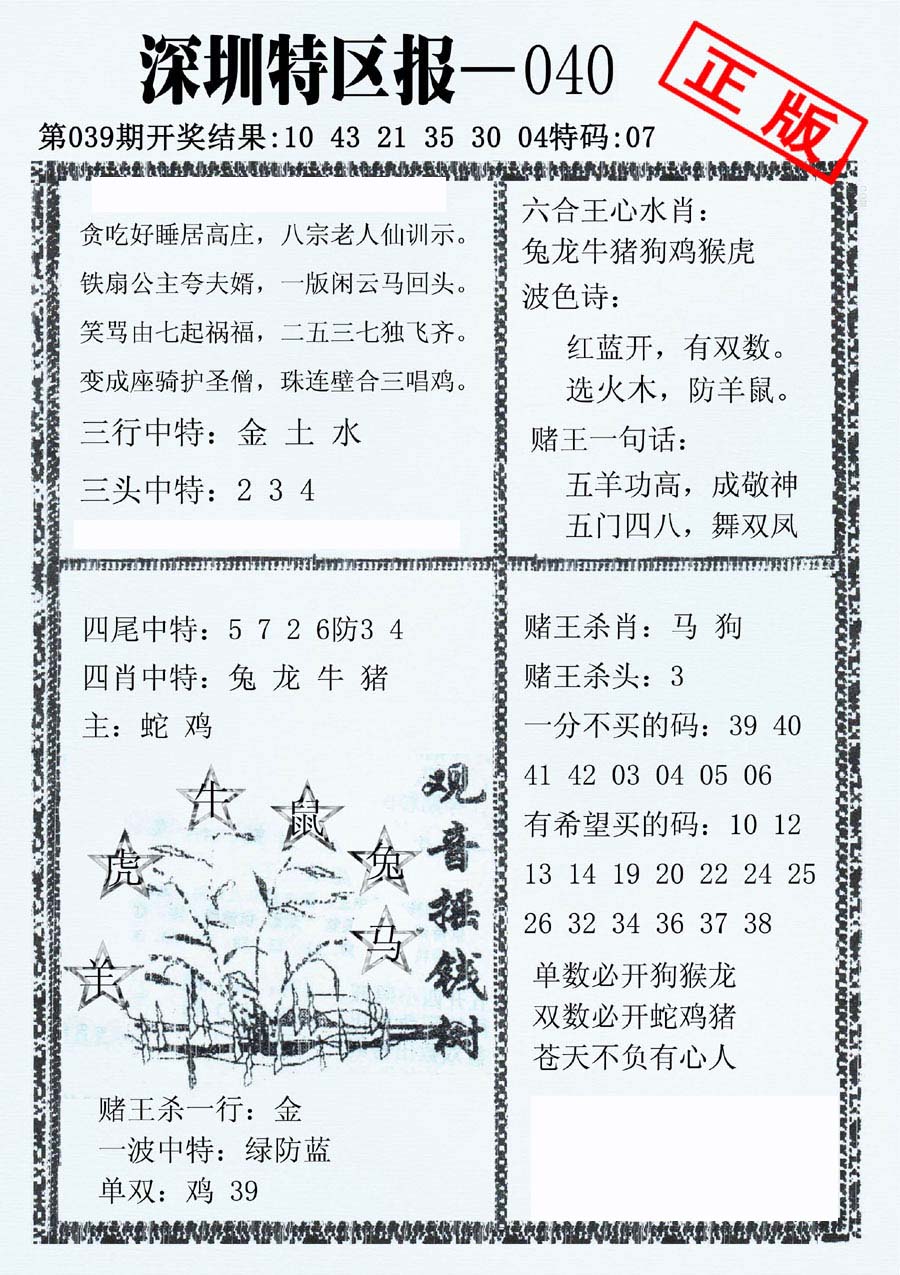 深圳特区报—040
正版
第039期开奖结果:10 43 21 35 30 04特码:07
贪吃好睡居高庄，八宗老人仙训示。
铁扇公主夸夫婿，一版闲云马回头。
笑骂由七起祸福，二五三七独飞齐。
变成座骑护圣僧，珠连壁合三唱鸡。
三行中特：金 土 水
三头中特：2 3 4
六合王心水肖：
兔龙牛猪狗鸡猴虎
波色诗：
红蓝开，有双数。
选火木，防羊鼠。
赌王一句话：
五羊功高，成敬神
五门四八，舞双凤
四尾中特：5 7 2 6防3 4
四肖中特：兔 龙 牛 猪
主：蛇 鸡
牛
鼠
虎
兔
马
羊
观音摇钱树
赌王杀一行：金
一波中特：绿防蓝
单双：鸡 39
赌王杀肖：马 狗
赌王杀头：3
一分不买的码：39 40
41 42 03 04 05 06
有希望买的码：10 12
13 14 19 20 22 24 25
26 32 34 36 37 38
单数必开狗猴龙
双数必开蛇鸡猪
苍天不负有心人